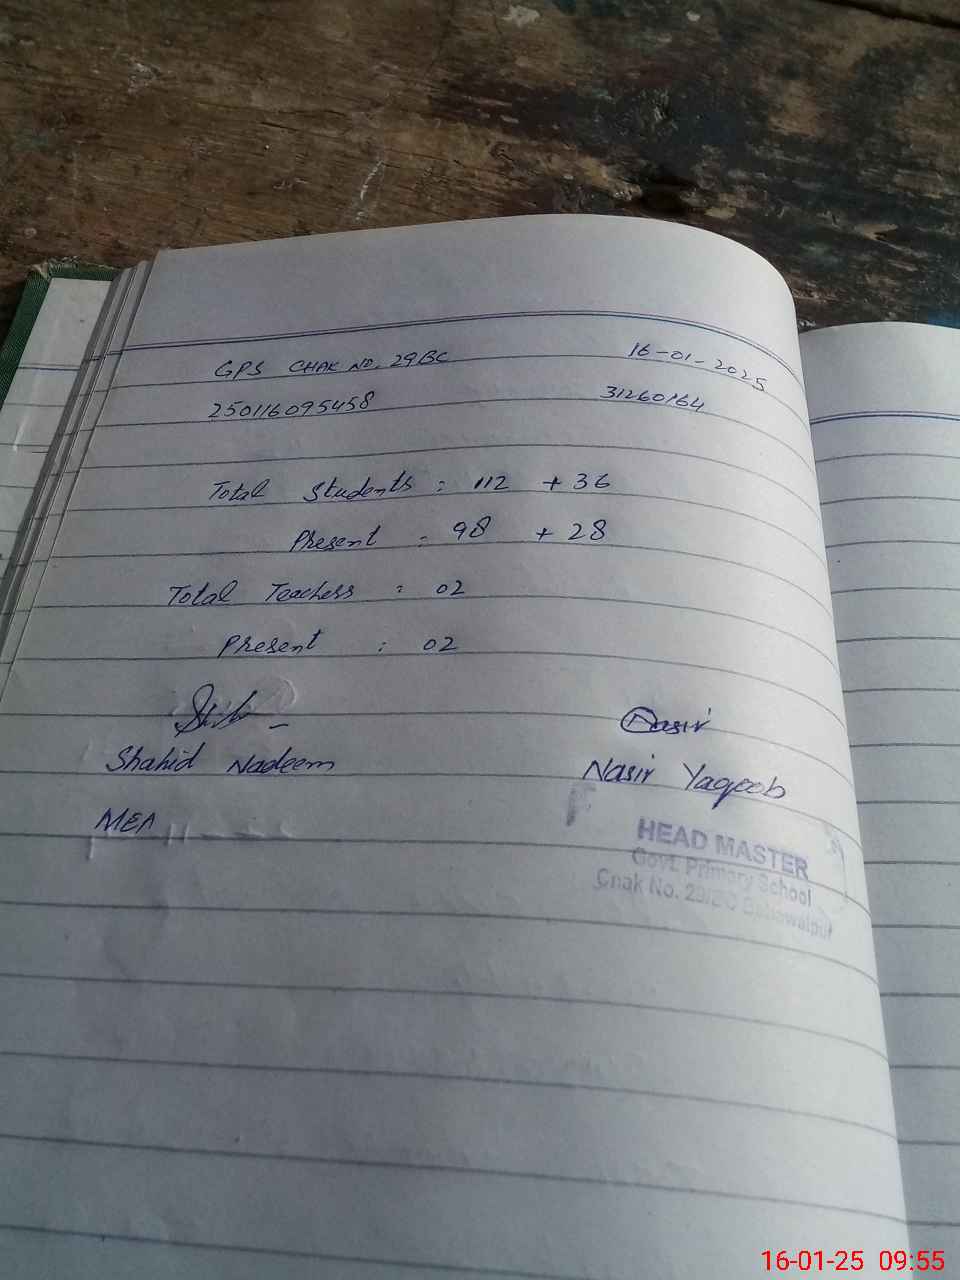 GPS CHAK NO. 29BC 16-01-2025
250116095458 31260164
Total Students : 112 + 36
Present : 98 + 28
Total Teachers : 02
Present : 02
Nasir
Shahid Nadeem Nasir Yaqoob
MEA
HEAD MASTER
Govt. Primary School
Chak No. 29/BC Bahawalpur
16-01-25 09:55